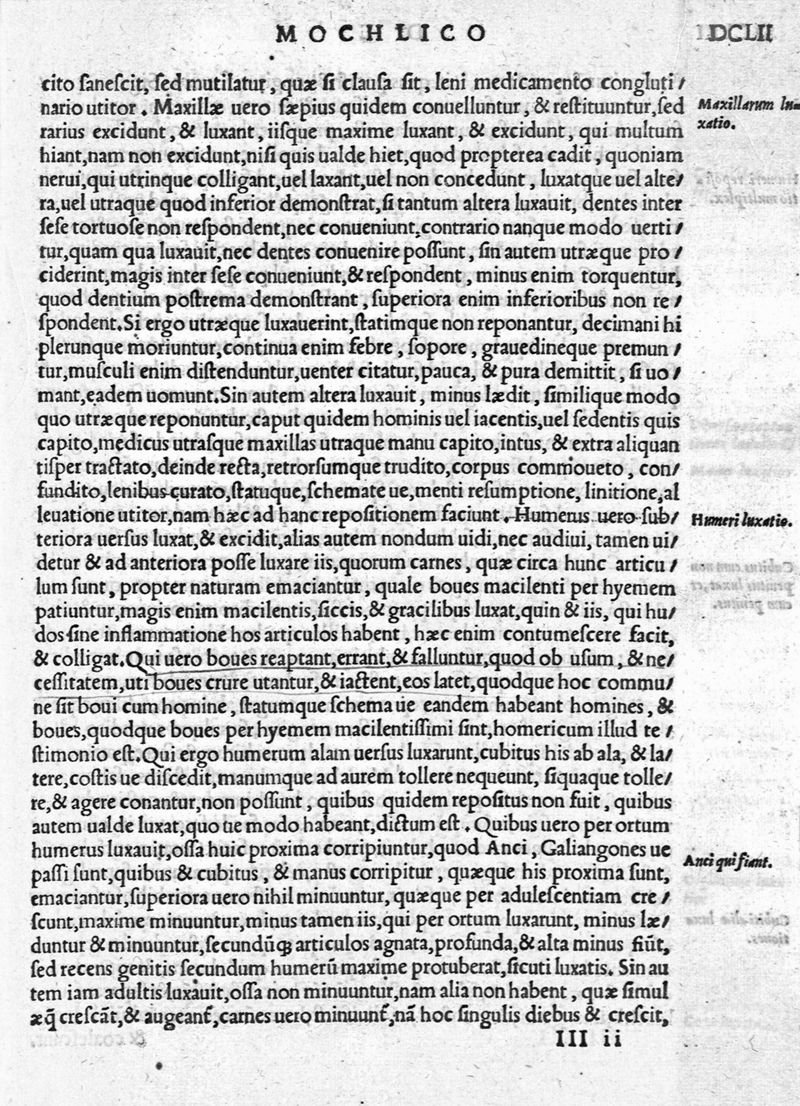 MOCHLICO DCLII
cito ſaneſcit, ſed mutilatur, quæ ſi clauſa ſit, leni medicamento congluti/
nario utitor. Maxillæ uero ſæpius quidem conuelluntur, & reſtituuntur, ſed
Maxillarum lu=
rarius excidunt, & luxant, iiſque maxime luxant, & excidunt, qui multum
xatio.
hiant, nam non excidunt, niſi quis ualde hiet, quod propterea cadit, quoniam
nerui, qui utrinque colligant, uel laxant, uel non concedunt, luxatque uel alte/
ra, uel utraque quod inferior demonſtrat, ſi tantum altera luxauit, dentes inter
ſeſe tortuoſe non reſpondent, nec conueniunt, contrario nanque modo uerti/
tur, quam qua luxauit, nec dentes conuenire poſſunt, ſin autem utræque pro/
ciderint, magis inter ſeſe conueniunt, & reſpondent, minus enim torquentur,
quod dentium poſtrema demonſtrant, ſuperiora enim inferioribus non re/
ſpondent. Si ergo utræque luxauerint, ſtatimque non reponantur, decimani hi
plerunque moriuntur, continua enim febre, ſopore, grauedineque premun/
tur, muſculi enim diſtenduntur, uenter citatur, pauca, & pura demittit, ſi uo/
mant, eadem uomunt. Sin autem altera luxauit, minus lædit, ſimilique modo
quo utræque reponuntur, caput quidem hominis uel iacentis, uel ſedentis quis
capito, medicus utraſque maxillas utraque manu capito, intus, & extra aliquan
tiſper tractato, deinde recta, retrorſumque trudito, corpus commoueto, con/
fundito, lenibus curato, ſtatuque, ſchemate ue, menti reſumptione, linitione, al
leuatione utitor, nam hæc ad hanc repoſitionem faciunt. Humerus uero ſub/
Humeri luxatio.
teriora uerſus luxat, & excidit, alias autem nondum uidi, nec audiui, tamen ui/
detur & ad anteriora poſſe luxare iis, quorum carnes, quæ circa hunc articu/
lum ſunt, propter naturam emaciantur, quale boues macilenti per hyemem
patiuntur, magis enim macilentis, ſiccis, & gracilibus luxat, quin & iis, qui hu/
dos ſine inflammatione hos articulos habent, hæc enim contumeſcere facit,
& colligat. Qui uero boues reaptant, errant, & falluntur, quod ob uſum, & ne/
ceſſitatem, uti boues crure utantur, & iactent, eos latet, quodque hoc commu/
ne ſit boui cum homine, ſtatumque ſchema ue eandem habeant homines, &
boues, quodque boues per hyemem macilentiſſimi ſint, homericum illud te/
ſtimonio eſt. Qui ergo humerum alam uerſus luxarunt, cubitus his ab ala, & la/
tere, coſtis ue diſcedit, manumque ad aurem tollere nequeunt, ſiquaque tolle/
re, & agere conantur, non poſſunt, quibus quidem repoſitus non fuit, quibus
autem ualde luxat, quo ue modo habeant, dictum eſt. Quibus uero per ortum
humerus luxauit, oſſa huic proxima corripiuntur, quod Anci, Galiangones ue
Anci qui fiant.
paſſi ſunt, quibus & cubitus, & manus corripitur, quæque his proxima ſunt,
emaciantur, ſuperiora uero nihil minuuntur, quæque per aduleſcentiam cre/
ſcunt, maxime minuuntur, minus tamen iis, qui per ortum luxarunt, minus læ/
duntur & minuuntur, ſecundũq́ articulos agnata, profunda, & alta minus fiũt,
ſed recens genitis ſecundum humerũ maxime protuberat, ſicuti luxatis. Sin au
tem iam adultis luxauit, oſſa non minuuntur, nam alia non habent, quæ ſimul
æq̃ creſcãt, & augeant᷑, carnes uero minuunt᷑, nã hoc ſingulis diebus & creſcit,
III ii